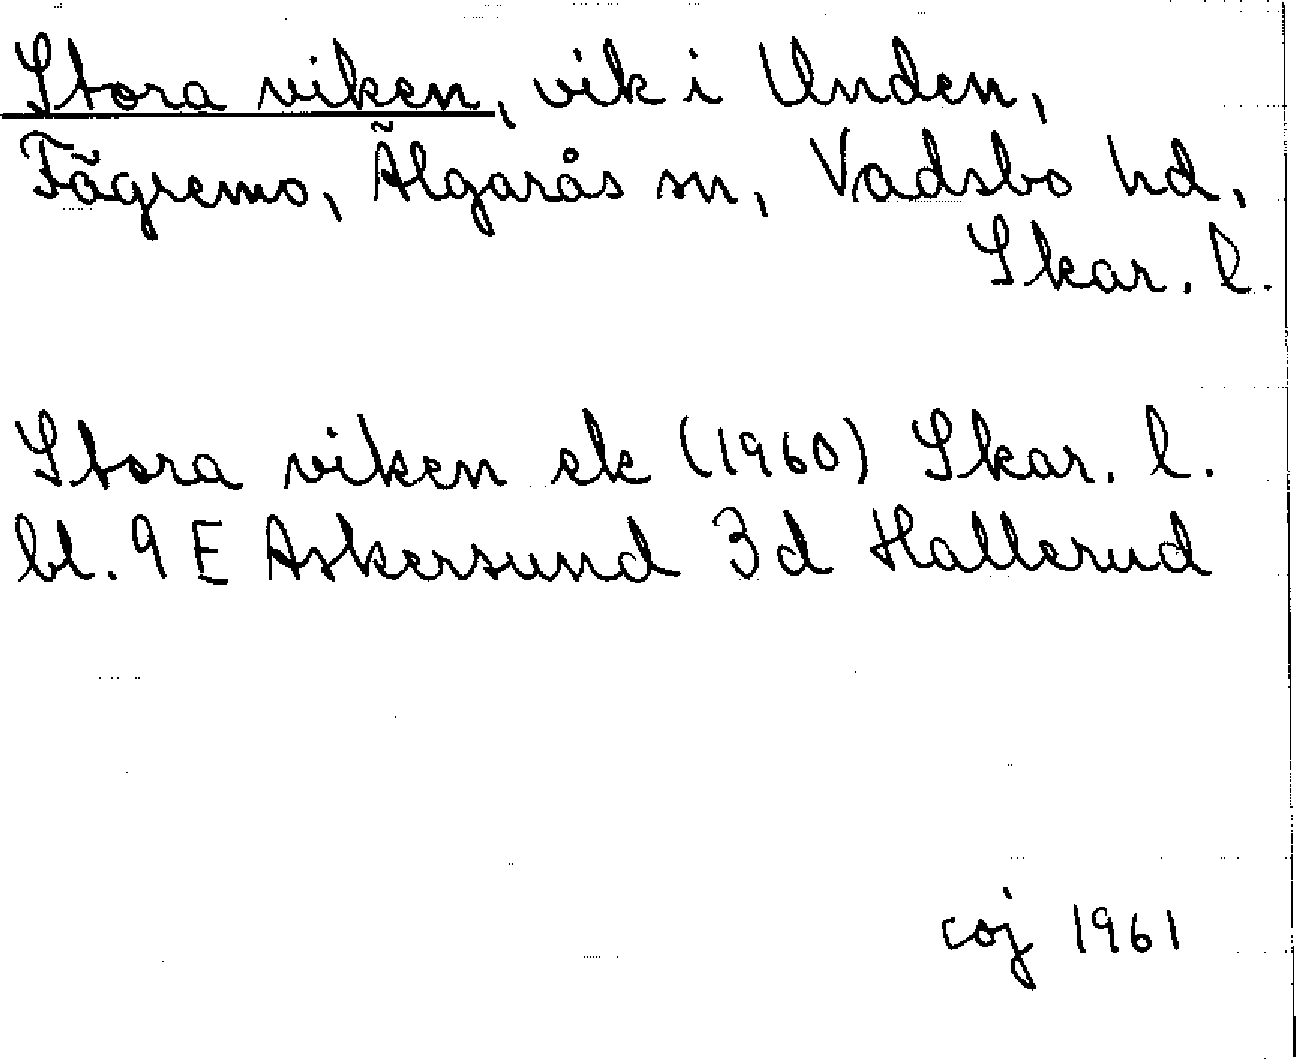 Stora viken, vik i Unden,
Fägremo, Älgarås sn, Vadsbo hd,
Skar. l.
Stora viken ek (1960) Skar. l.
bl. 9 E Askersund 3d Hallerud
coj 1961